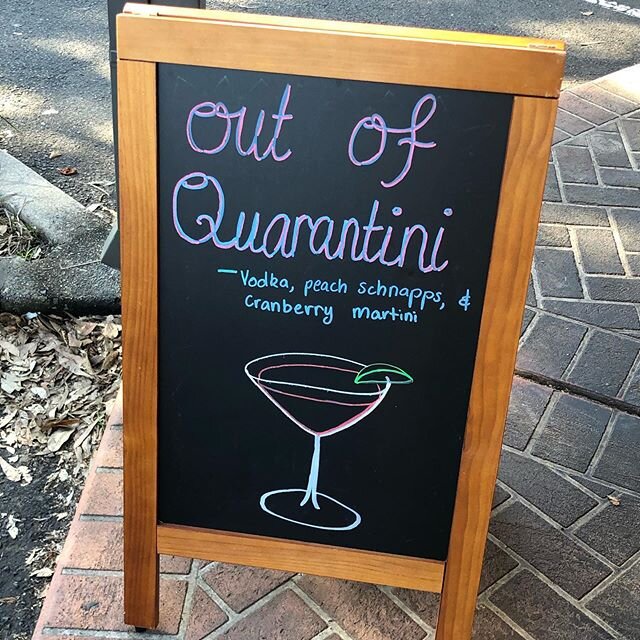 out of
Quarantini
– Vodka, peach schnapps, &
cranberry martini